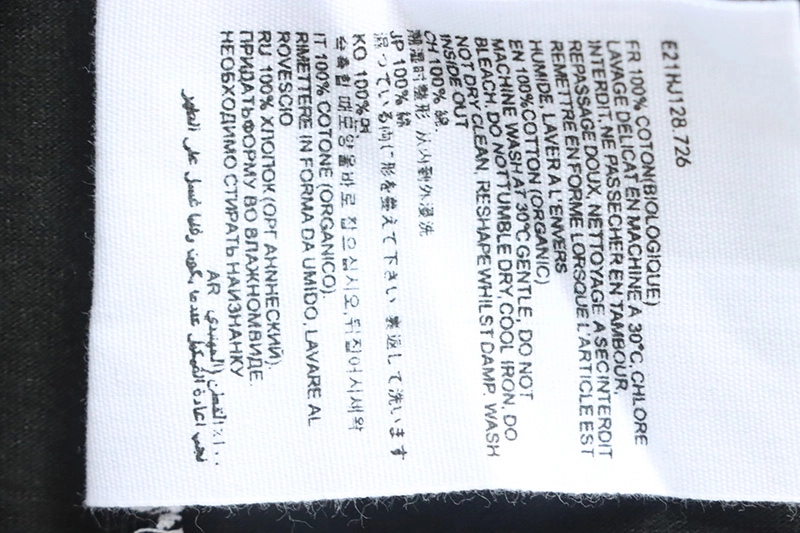 E21HJ128.726
FR 100% COTON(BIOLOGIQUE)
LAVAGE DÉLICAT EN MACHINE A 30°C, CHLORE
INTERDIT, NE PAS SECHER EN TAMBOUR,
REPASSAGE DOUX, NETTOYAGE A SEC INTERDIT
REMETTRE EN FORME LORSQUE L'ARTICLE EST
HUMIDE, LAVER A L'ENVERS
EN 100%COTTON (ORGANIC)
MACHINE WASH AT 30°C GENTLE, DO NOT
BLEACH, DO NOT TUMBLE DRY, COOL IRON, DO
NOT DRY CLEAN, RESHAPE WHILST DAMP. WASH
INSIDE OUT
CH 100% 綿.
潮湿时整形 从内到外浸洗
JP 100% 綿
湿っている内に形を整えて下さい 裏返して洗います
KO 100%면
습할 때 모양을 바로 잡으십시오, 뒤집어서 세탁
IT 100% COTONE (ORGANICO).
RIMETTERE IN FORMA DA UMIDO, LAVARE AL
ROVESCIO
RU 100% ХЛОПОК (ОРГАННЧЕСКИЙ).
ПРИДАТЬ ФОРМУ ВО ВЛАЖНОМ ВИДЕ.
НЕОБХОДИМО СТИРАТЬ НАИЗНАНКУ
AR
١٠٠٪ القطن